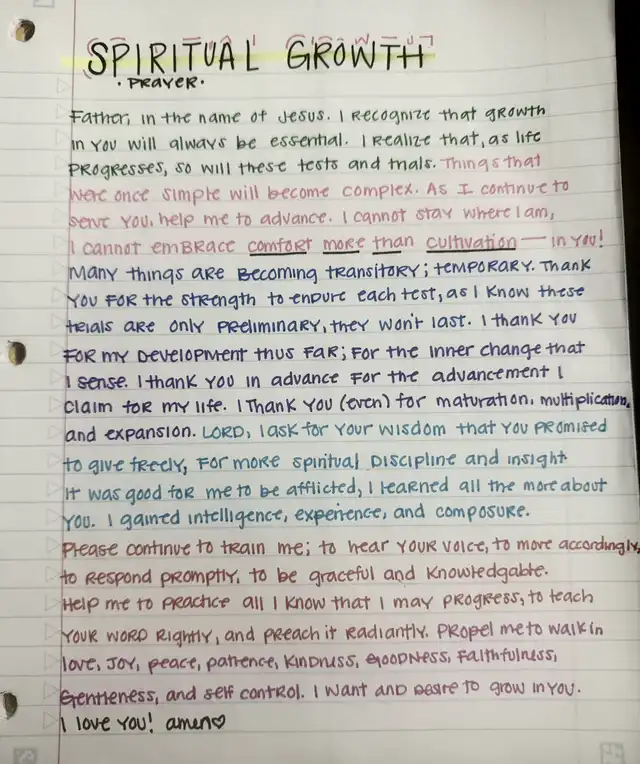 SPIRITUAL GROWTH
· PRAYER ·
Father, in the name of Jesus. I recognize that growth
in you will always be essential. I realize that, as life
progresses, so will these tests and trials. Things that
were once simple will become complex. As I continue to
serve you, help me to advance. I cannot stay where I am,
I cannot embrace comfort more than cultivation — in you!
Many things are becoming transitory; temporary. Thank
you for the strength to endure each test, as I know these
trials are only preliminary, they won't last. I thank you
for my development thus far; for the inner change that
I sense. I thank you in advance for the advancement I
claim for my life. I thank you (even) for maturation, multiplication,
and expansion. Lord, I ask for your wisdom that you promised
to give freely, for more spiritual discipline and insight
It was good for me to be afflicted, I learned all the more about
you. I gained intelligence, experience, and composure.
Please continue to train me; to hear your voice, to more accordingly,
to respond promptly, to be graceful and knowledgable.
Help me to practice all I know that I may progress, to teach
your word rightly, and preach it radiantly. Propel me to walk in
love, joy, peace, patience, kindness, goodness, faithfulness,
gentleness, and self control. I want and desire to grow in you.
I love you! amen♡